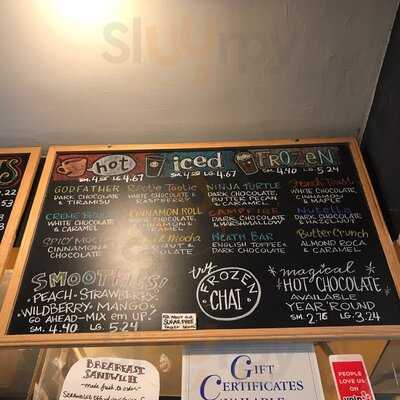 Sluurpy
hot
SM. 4.00 LG. 4.67
iced
SM. 4.00 LG. 4.67
FROZEN
SM. 4.40 LG. 5.24
GODFATHER
DARK CHOCOLATE
& TIRAMISU
Rootie Tootie
WHITE CHOCOLATE
RASPBERRY
NINJA TURTLE
DARK CHOCOLATE,
BUTTER PECAN
& CARAMEL
WHITE CHOCOLATE,
& CARAMEL
CREME
WHITE CHOCOLATE
& CARAMEL
CINNAMON ROLL
WHITE CHOCOLATE,
& CARAMEL
CAMPFIRE
DARK CHOCOLATE
& MARSHMALLOW
DARK CHOCOLATE
& HAZELNUT
SPICY
CINNAMON &
CHOCOLATE
Mocha
HEATH BAR
ENGLISH TOFFEE &
DARK CHOCOLATE
ButterCrunch
ALMOND ROCA
& CARAMEL
SMOOTHIES!
PEACH - STRAWBERRY
WILDBERRY - MANGO
GO AHEAD - MIX em UP!
SM. 4.40 LG 5.24
SUGAR FREE
try
FROZEN
CHAI
*magical*
HOT CHOCOLATE
AVAILABLE
YEAR 'ROUND
SM. 2.75 LG. 3.24
BREAKFAST
SANDWICH
made fresh to order
GIFT
CERTIFICATES
AVAILABLE
PEOPLE
LOVE US ON
yelp